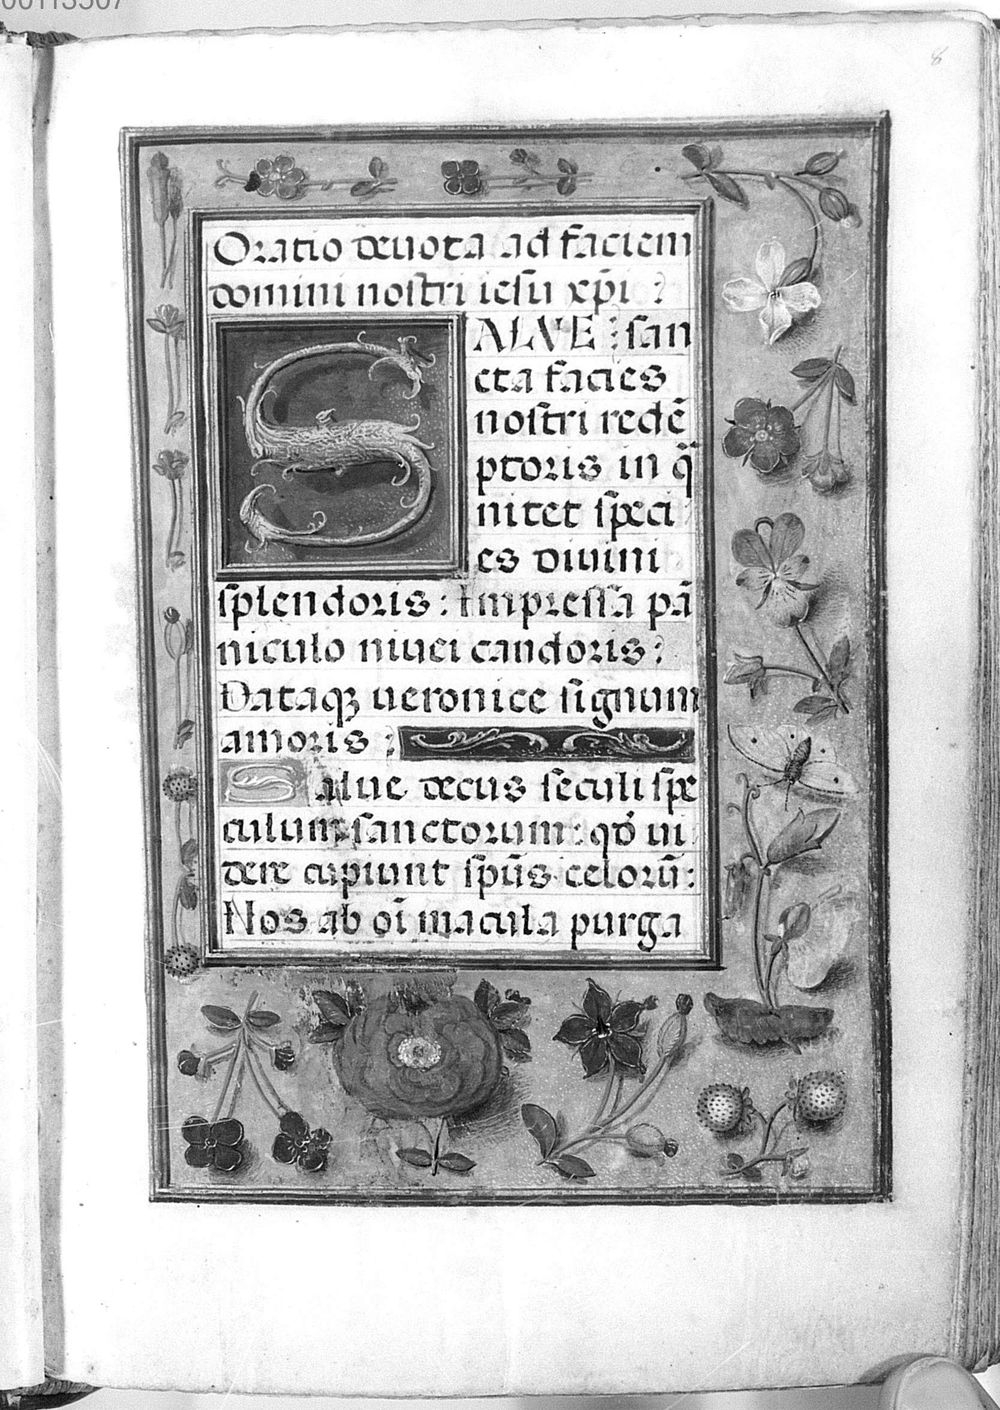 00113507
8
Oratio deuota ad faciem
domini nostri iesu xp̄i :
SALVE : san
cta facies
nostri redē
ptoris in q̄
nitet speci
es diuini
splendoris : Impressa pā
niculo niuei candoris :
Dataqꝫ ueronice signum
amoris :
Salue decus seculi spe
culum sanctorum : qd̄ ui
dere cupiunt sp̄us celorū :
Nos ab oī macula purga